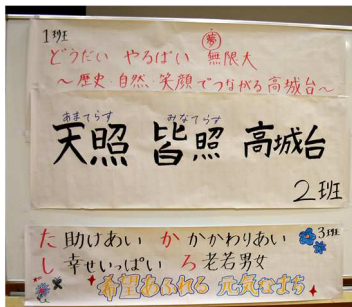 1班
どうだい やるばい 夢 無限大
～歴史・自然・笑顔でつながる高城台～
あまてらす みなてらす
天照 皆照 高城台
2班
3班
た 助けあい か かかわりあい
し 幸せいっぱい ろ 老若男女
希望あふれる 元気なまち